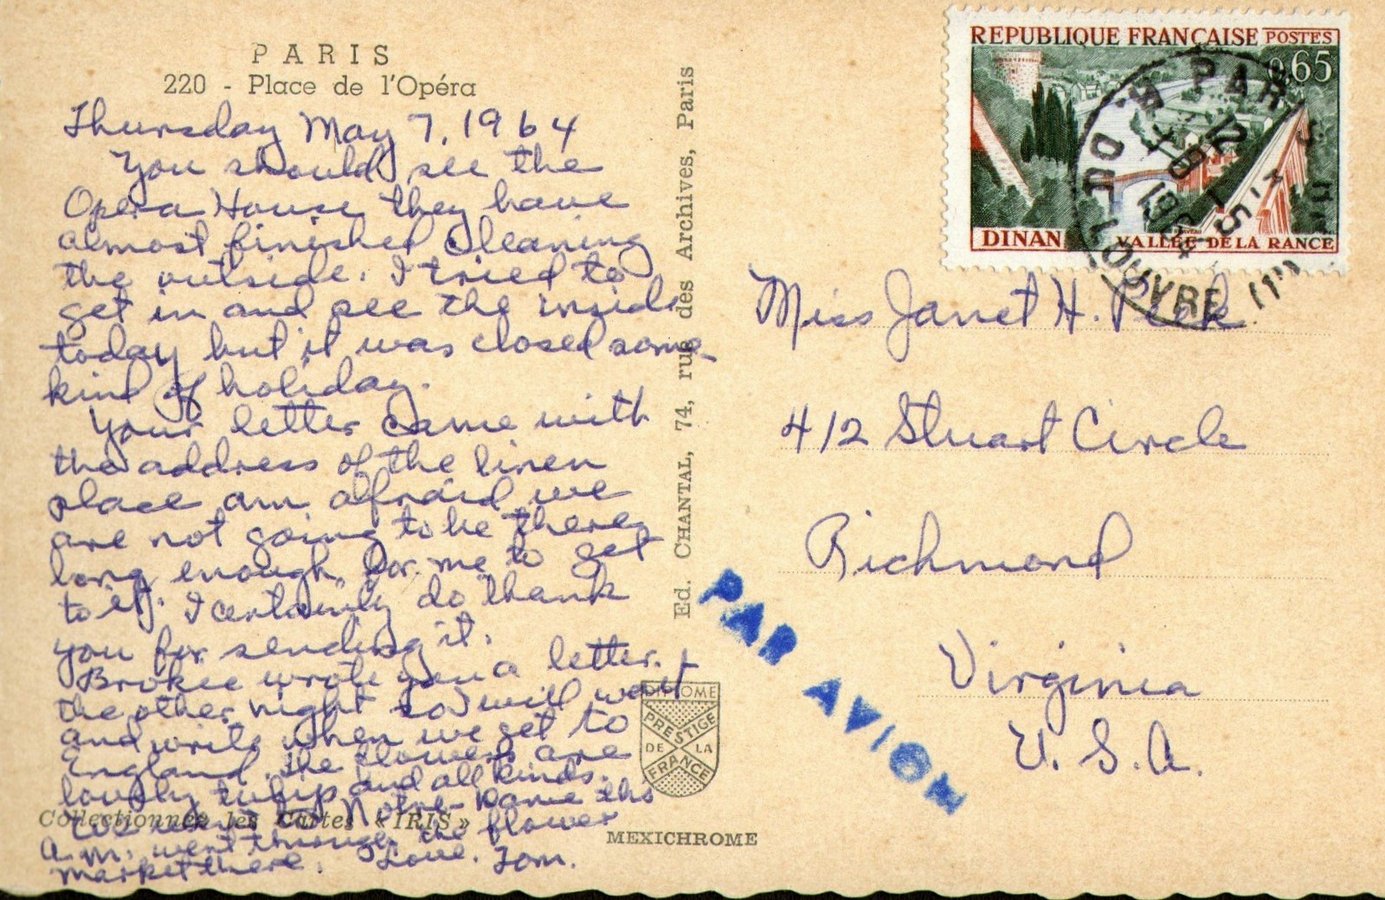 PARIS
220 - Place de l'Opéra
Thursday May 7, 1964
You should see the
Opera House they have
almost finished cleaning
the outside. I tried to
get in and see the inside
today but it was closed some
kind of holiday.
Your letter came with
the address of the linen
place am afraid we
are not going to be there
long enough for me to get
to it. I certainly do thank
you for sending it.
Brokie wrote you a letter
the other night so I will wait
and write when we get to
England. The flowers are
lovely tulips and all kinds.
We went to Notre-Dame this
a.m. went through the flower
market there. Love. Tom.
Collectionnez les Cartes «IRIS»
Ed. CHANTAL, 74, rue des Archives, Paris
DIPLOME
PRESTIGE
DE LA
FRANCE
MEXICHROME
PAR AVION
REPUBLIQUE FRANÇAISE POSTES
0,65
DINAN VALLÉE DE LA RANCE
PARIS
R. DU LOUVRE (1er)
12
1964
Miss Janet H. Peek
412 Stuart Circle
Richmond
Virginia
U.S.A.